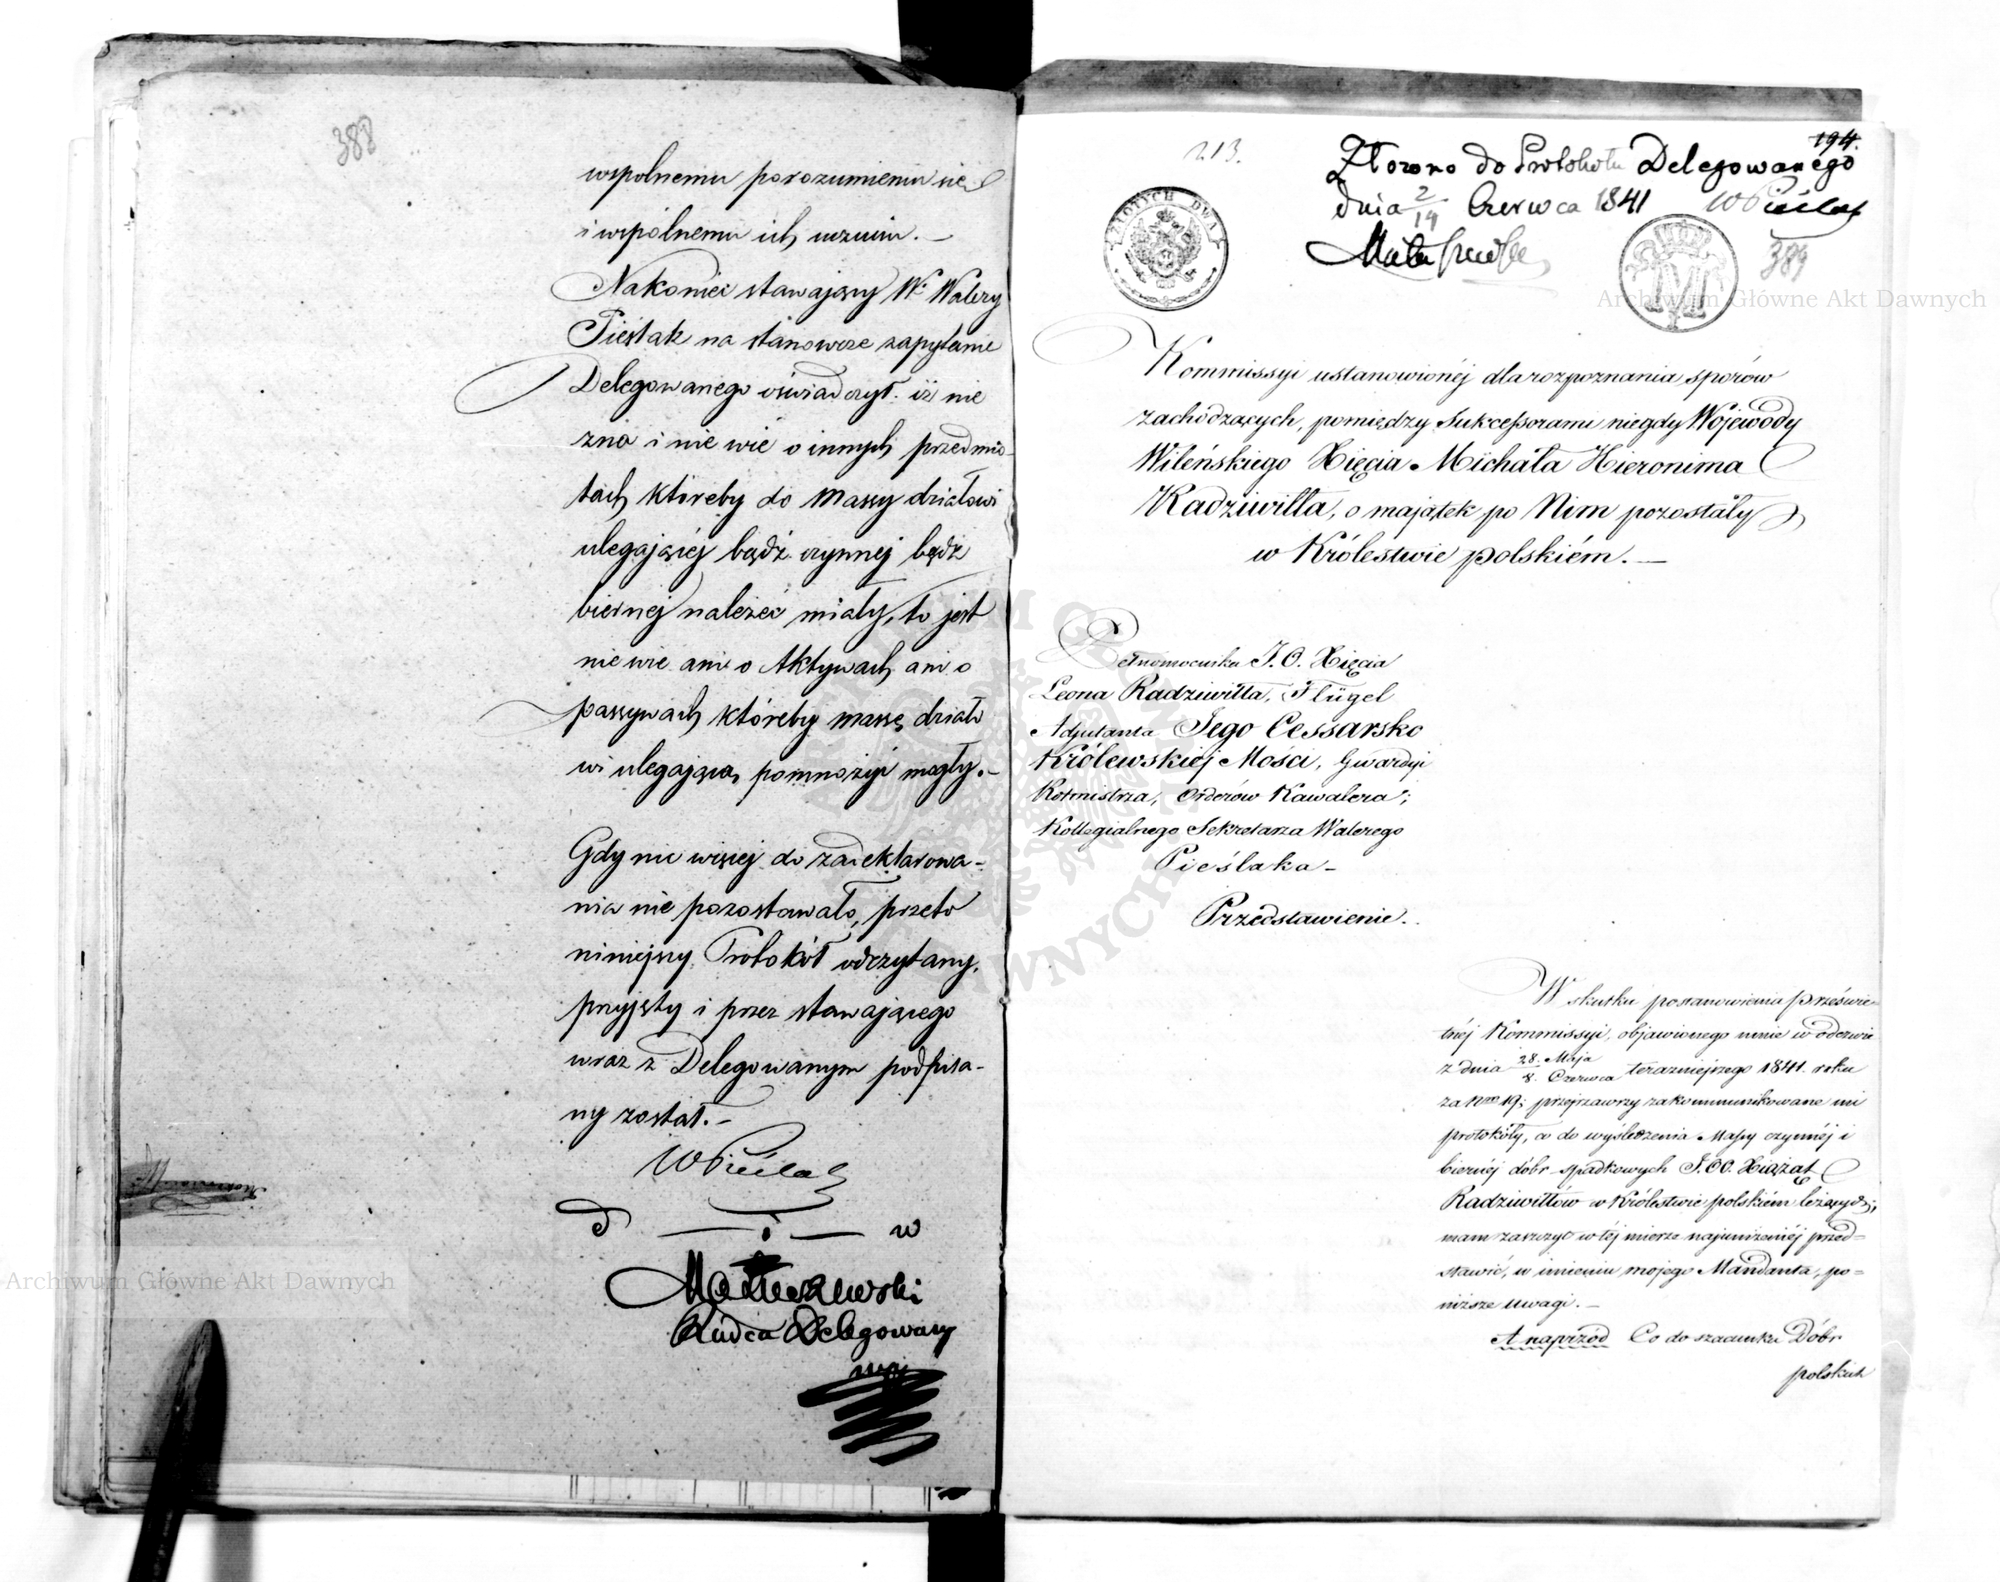 388
wspolnemu porozumieniu się
i wspólnemu ich uznaniu. —
Nakoniec stawający W. Walery
Pieślak na stanowcze zapytanie
Delegowanego oświadczył iż nie
zna i nie wie o innych przedmio-
tach któreby do massy działowi
ulegającéj bądź czynnej bądź
biernej należeć miały, to jest
nie wie ani o Aktywach ani o
passywach któreby massę działo
wi ulegającą pomnożyć mogły. —
Gdy nic więcej do zadeklarowa-
nia nie pozostawało, przeto
niniejszy Protokół odczytany,
przyjęty i przez stawającego
wraz z Delegowanym podpisa-
ny został. —
WPieślak
d — i — w
Matuszewski
Radca Delegowany
213.
194.
Złożono do Protokołu Delegowanego
dnia 2/14 Czerwca 1841 WPieślak
Matuszewski
389
ZŁOTYCH DWA
Kommissyi ustanowionéj dla rozpoznania sporów
zachodzących, pomiędzy Sukcessorami niegdy Wojewody
Wileńskiego Xięcia Michała Hieronima
Radziwiłła, o majątek po Nim pozostały
w Królestwie polskiém. —
Pełnomocnika J. O. Xięcia
Leona Radziwiłła, Flügel
Adjutanta Jego Cessarsko
Królewskiéj Mości, Gwardyi
Rotmistrza, Orderów Kawalera;
Kollegialnego Sekretarza Walerego
Pieślaka —
Przedstawienie.
W skutku postanowienia prześwie-
tnéj Kommissyi, objawionego mnie w odezwie
z dnia 28. Maja / 8. Czerwca teraźniejszego 1841. roku
za Nrm 19; przejrzawszy zakommunikowane mi
protokóły, co do wyśledzenia Massy czynnéj i
biernéj dóbr spadkowych J. OO. Xiążąt
Radziwiłłów w Królestwie polskiém leżących;
mam zaszczyt w téj mierze najuniżeniéj przed-
stawić, w imieniu mojego Mandanta, po-
niższe uwagi. —
A naprzód Co do szacunku Dóbr
polskich
Archiwum Główne Akt Dawnych
Archiwum Główne Akt Dawnych